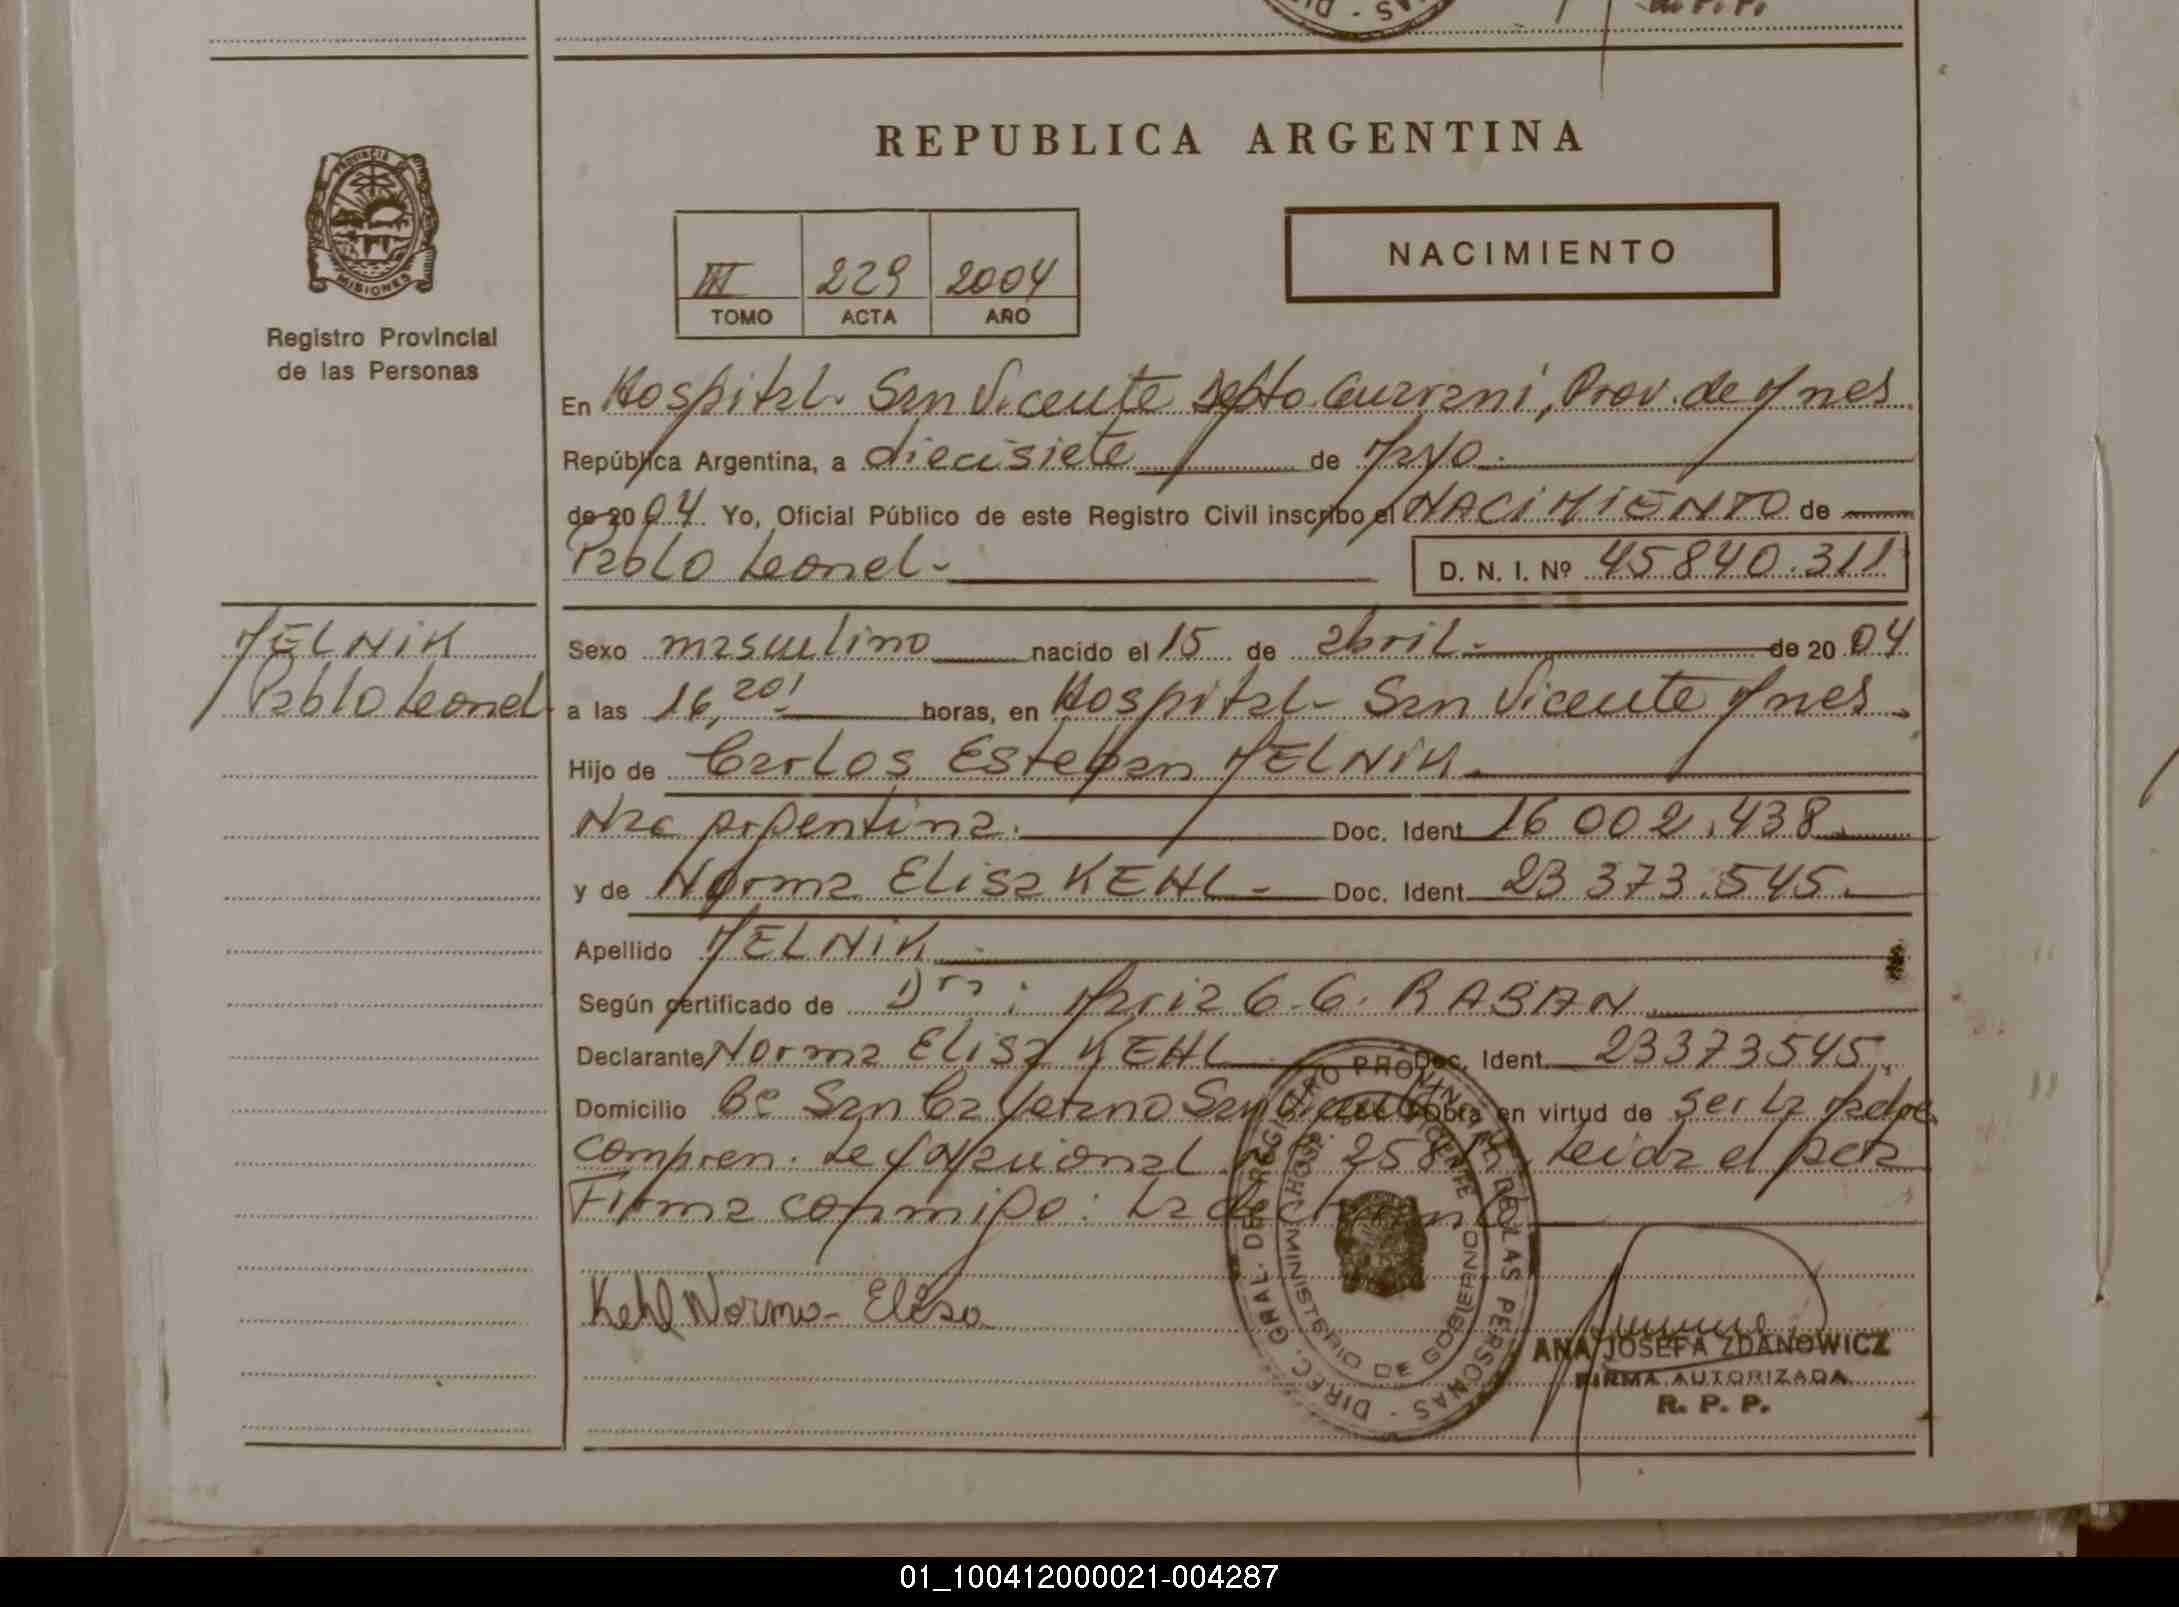 REPUBLICA ARGENTINA
PROVINCIA DE
MISIONES
Registro Provincial
de las Personas
NACIMIENTO
III 229 2004
TOMO ACTA AÑO
En Hospital San Vicente Depto Guarani, Prov. de Mnes
República Argentina, a diecisiete de Mayo
de 2004 Yo, Oficial Público de este Registro Civil inscribo el NACIMIENTO de
Pablo Leonel
D. N. I. Nº 45840.311
MELNIK
Pablo Leonel
Sexo masculino nacido el 15 de abril de 2004
a las 16,20' horas, en Hospital San Vicente Mnes
Hijo de Carlos Esteban MELNIK
Nac Argentina. Doc. Ident 16 002.438
y de Norma Elisa KEHL Doc. Ident. 23 373.545.
Apellido MELNIK
Según certificado de Dra: Maria G. G. RABAN
Declarante Norma Elisa KEHL Doc. Ident. 23373545.
Domicilio Bº San Cayetano San Vicente Obra en virtud de ser la Madre
compren. Leída el Acta
Firma conmigo: La declarante
Kehl Norma Elisa
DIREC. GRAL. DE REGISTRO PROVINCIAL DE LAS PERSONAS
HOSP. SAN VICENTE
MINISTERIO DE GOBIERNO
ANA JOSEFA ZDANOWICZ
FIRMA AUTORIZADA
R. P. P.
01_100412000021-004287